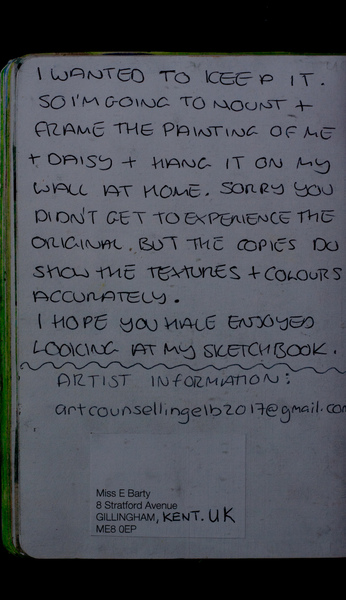 I WANTED TO KEEP IT.
SO I'M GOING TO MOUNT +
FRAME THE PAINTING OF ME
+ DAISY + HANG IT ON MY
WALL AT HOME. SORRY YOU
DIDN'T GET TO EXPERIENCE THE
ORIGINAL. BUT THE COPIES DO
SHOW THE TEXTURES + COLOURS
ACCURATELY.
I HOPE YOU HAVE ENJOYED
LOOKING AT MY SKETCHBOOK.
ARTIST INFORMATION:
artcounsellingelb2017@gmail.com
Miss E Barty
8 Stratford Avenue
GILLINGHAM, KENT. UK
ME8 0EP